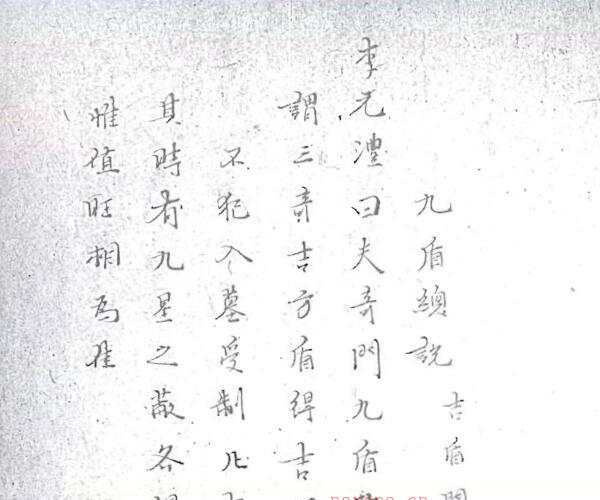 九盾總説
吉盾門
李元澧曰夫奇門九盾
謂三奇吉方盾得吉
不犯入墓受制
其時有九星之蔽各
惟值旺相為佳